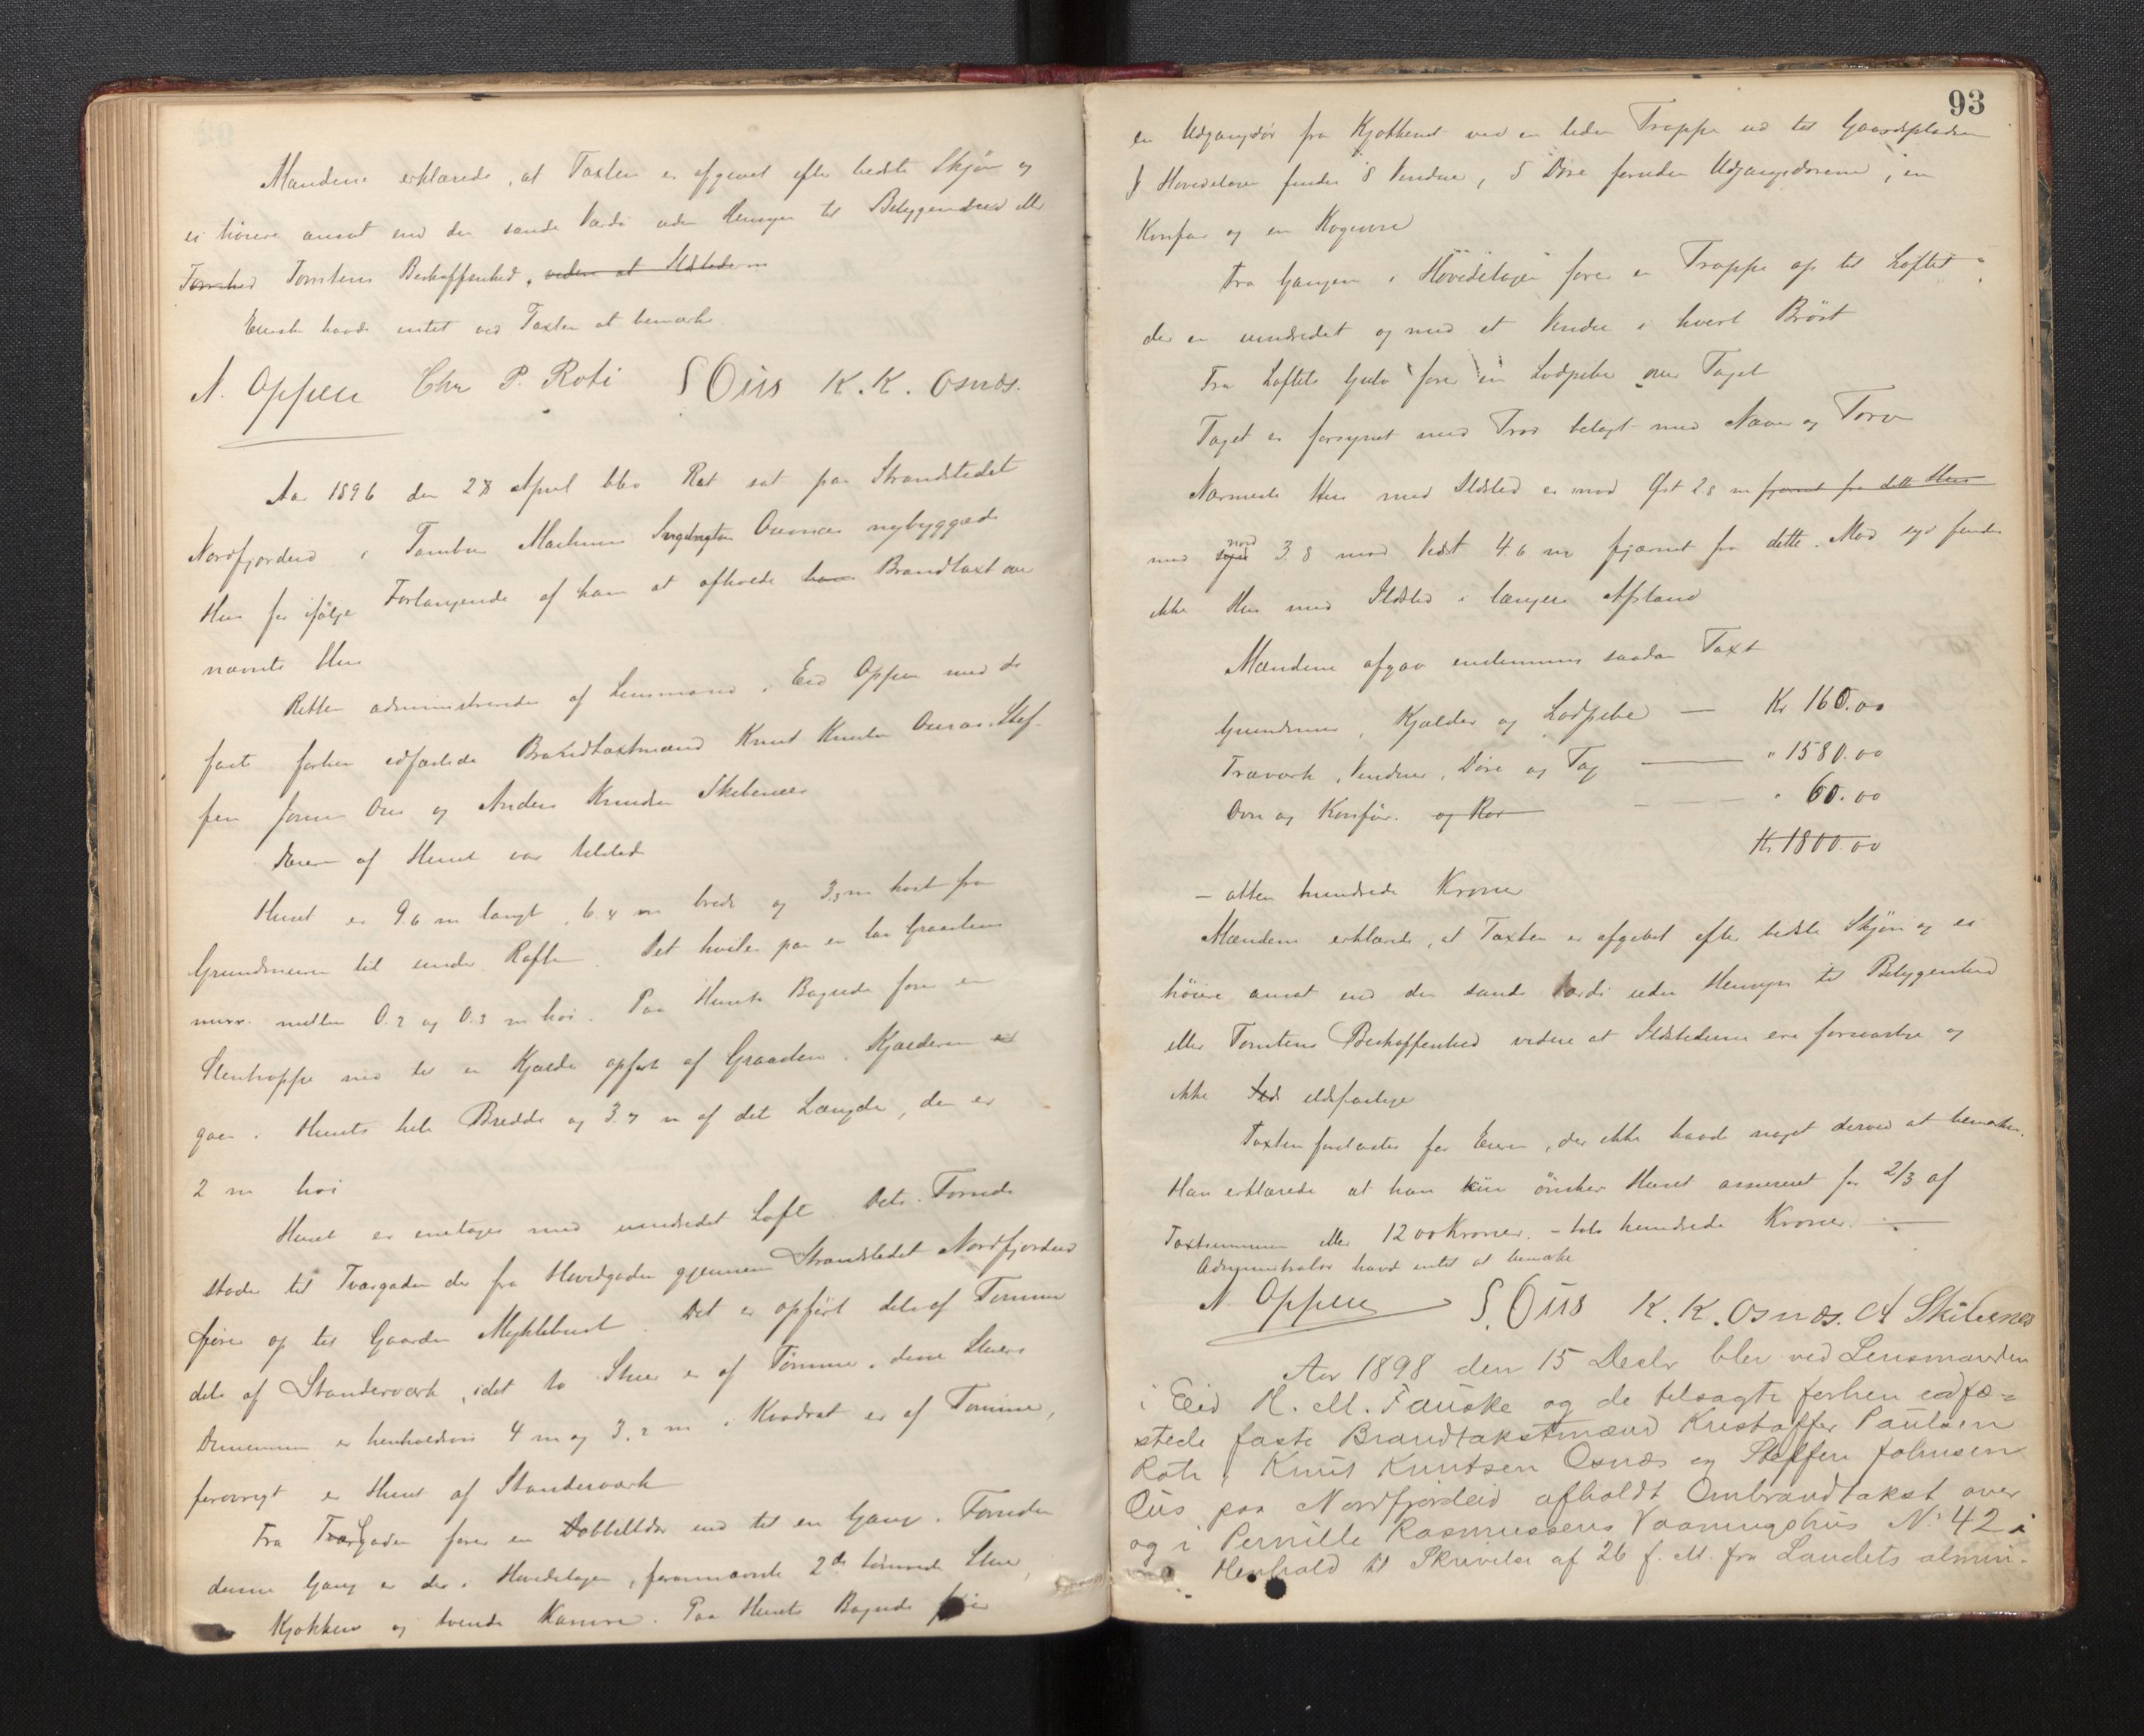 Mændene erklærede, at Taxten er afgivet efter bedste Skjøn og
ei høiere ansat end den sande Værdi uden Hensyn til Beliggenhed eller
Tomthed Tomtens Beskaffenhed, videre at Ildstederne
Eieren havde intet ved Taxten at bemærke.
N. Oppen Chr P. Roti S Ous K. K. Osnæs.
Aar 1896 den 28 April blev Ret sat paa Strandstedet
Nordfjordeid i Tambur Markus Osnæs nybyggede
Hus for ifølge Forlangende af ham at afholde Brandtaxt over
nævnte Hus
Retten administreredes af Lensmand i Eid Oppen med de
faste forhen edfæstede Brandtaxtmænd Knut Knutsen Osnæs, Stef-
fen Johnsen Ous og Anders Knudsen Skibenes
Eieren af Huset var tilstede
Huset er 9.6 m langt, 6.4 m bredt og 3.3 m høit fra
Grundmuren til under Raften. Det hviler paa en lav Graastens
mur mellem 0.2 og 0.3 m høi. Paa Husets Bagside fører en
Stentrappe ned til en Kjælder opført af Graasten. Kjælderen er
gaar i Husets hele Bredde og 3.7 m af det Længde, den er
2 m høi
Huset er enetages med uindredet Loft. Dets Forside
støder til Tværgaden der fra Hovedgaden gjennem Strandstedet Nordfjordeid
fører op til Gaarden Myklebust. Det er opført dels af Tømmer
dels af Standerværk, idet to Stuer er af Tømmer, disse Stuers
Dimension er henholdsvis 4 m og 3.2 m i Kvadrat er af Tømmer,
forøvrigt er Huset af Standerværk
Fra Tværgaden fører en Dobbeltdør ind til en Gang. Foruden
denne Gang er der i Hovedetagen, forannævnte 2de tømrede Stuer,
Kjøkken og tvende Kamre. Paa Husets Bagside fører
93
en Udgangsdør fra Kjøkkenet ved en liden Trappe ud til Gaardspladsen
I Hovedetagen findes 8 Vinduer, 5 Døre foruden Udgangsdørene, en
Komfur og en Kogeovn
Fra Gangen i Hovedetagen fører en Trappe op til Loftet
der er uindredet og med et Vindu i hvert Brøst
Fra Loftets Gulv fører en Lodpibe over Taget
Taget er forsynet med Tro belagt med Næver og Torv
Nærmeste Hus med Ildsted er mod Øst 2.8 m fjernet fra dette Hus
mod syd nord 3.8 mod Vest 4.6 m fjærnet fra dette. Mod syd findes
ikke Hus med Ildsted i længere Afstand
Mændene afgav enstemmig saadan Taxt
Grundmur, Kjælder og Lodpibe — Kr 160.00
Træværk, Vinduer, Døre og Tag — " 1580.00
Ovn og Komfur. og Rør — " 60.00
Kr 1800.00
– atten hundrede Kroner
Mændene erklærede, at Taxten er afgivet efter bedste Skjøn og ei
høiere ansat end den sande Værdi uden Hensyn til Beliggenhed
eller Tomtens Beskaffenhed videre at Ildstederne ere forsvarlige og
ikke ildsfarlige
Taxten forelæstes for Eieren, der ikke havde noget derved at bemærke.
Han erklærede at han kun ønsker Huset assureret for 2/3 af
Taxtsummen eller 1200 Kroner. – tolv hundrede Kroner. —
Administrator havde intet at bemærke
N. Oppen S. Ous K. K. Osnæs. A Skibenes
Aar 1898 den 15 Decbr blev ved Lensmanden
i Eid H. M. Fauske og de tilsagte forhen edfæ=
stede faste Brandtakstmænd Kristoffer Paulsen
Roti, Knut Knutsen Osnæs og Steffen Johnsen
Ous paa Nordfjordeid afholdt Ombrandtakst over
og i Pernille Rasmussens Vaaningshus No 42 i
Henhold til Skrivelse af 26 f. M. fra Landets almin-